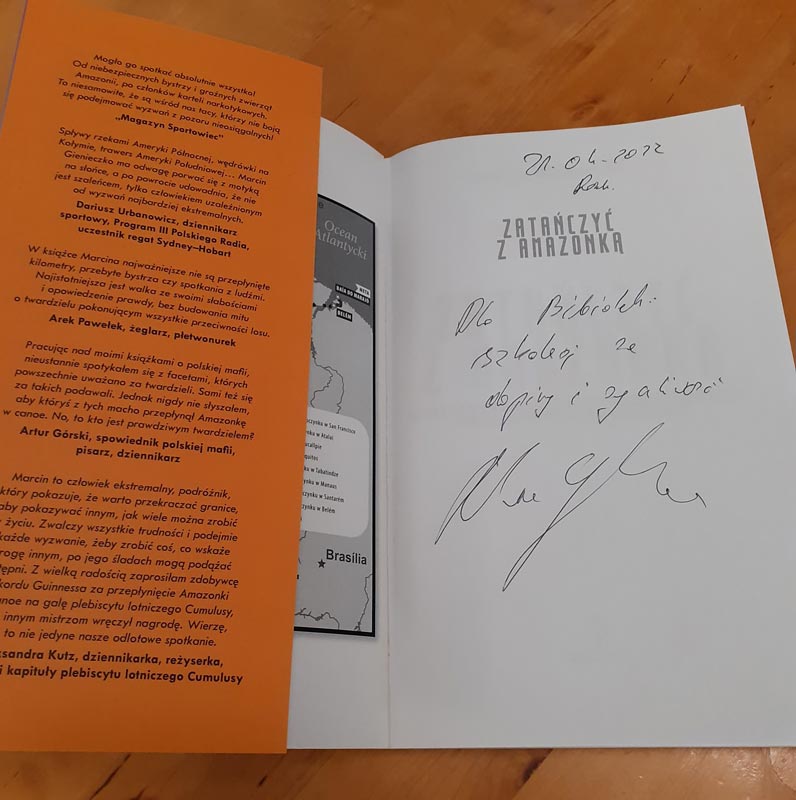 Mogło go spotkać absolutnie wszystko!
Od niebezpiecznych bystrzy i groźnych zwierząt
Amazonii, po członków karteli narkotykowych.
To niesamowite, że są wśród nas tacy, którzy nie boją
się podejmować wyzwań z pozoru nieosiągalnych!
„Magazyn Sportowiec”
Spływy rzekami Ameryki Północnej, wędrówki na
Kołymie, trawers Ameryki Południowej... Marcin
Gienieczko ma odwagę porwać się z motyką
na słońce, a po powrocie udowadnia, że nie
jest szaleńcem, tylko człowiekiem uzależnionym
od wyzwań najbardziej ekstremalnych.
Dariusz Urbanowicz, dziennikarz
sportowy, Program III Polskiego Radia,
uczestnik regat Sydney–Hobart
W książce Marcina najważniejsze nie są przepłynięte
kilometry, przebyte bystrza czy spotkania z ludźmi.
Najistotniejsza jest walka ze swoimi słabościami
i opowiedzenie prawdy, bez budowania mitu
o twardzielu pokonującym wszystkie przeciwności losu.
Arek Pawełek, żeglarz, płetwonurek
Pracując nad moimi książkami o polskiej mafii,
nieustannie spotykałem się z facetami, których
powszechnie uważano za twardzieli. Sami też się
za takich podawali. Jednak nigdy nie słyszałem,
aby któryś z tych macho przepłynął Amazonkę
w canoe. No, to kto jest prawdziwym twardzielem?
Artur Górski, spowiednik polskiej mafii,
pisarz, dziennikarz
Marcin to człowiek ekstremalny, podróżnik,
który pokazuje, że warto przekraczać granice,
aby pokazywać innym, jak wiele można zrobić
życiu. Zwalczy wszystkie trudności i podejmie
każde wyzwanie, żeby zrobić coś, co wskaże
rogę innym, po jego śladach mogą podążać
stępni. Z wielką radością zaprosiłam zdobywcę
kordu Guinnessa za przepłynięcie Amazonki
anoe na galę plebiscytu lotniczego Cumulusy,
innym mistrzom wręczył nagrodę. Wierzę,
to nie jedyne nasze odlotowe spotkanie.
ksandra Kutz, dziennikarka, reżyserka,
i kapituły plebiscytu lotniczego Cumulusy
Ocean
Atlantycki
META
BAÍA DO MARAJO
BELÉM
oczynku w San Francisco
ynku w Atalai
ucallpie
quitos
ynku w Tabatindze
ynku w Manaus
czynku w Santarém
ynku w Belém
Brasília
21.04.2022
ZATAŃCZYĆ
Z AMAZONKĄ
Dla Bibliotek
szkolnej ze